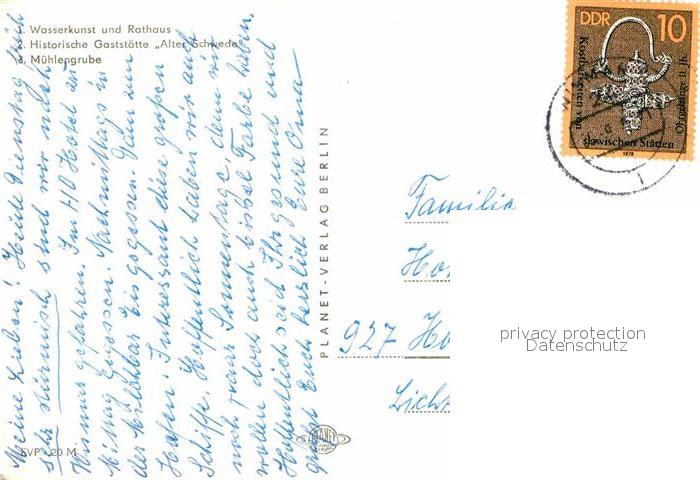 1. Wasserkunst und Rathaus
2. Historische Gaststätte „Alter Schwede"
3. Mühlengrube
Meine Lieben! Heute Dienstag früh
sehr stürmisch sind wir nach
Wismar gefahren. Im HO Hotel zu
Mittag gegessen. Nachmittags in
der Milchbar Eis gegessen. Dann zum
Hafen. Interessant diese großen
Schiffe. Hoffentlich haben wir auch
noch paar Sonnentage, denn wir
wollen doch auch bissel Farbe haben.
Hoffentlich seid Ihr gesund und
grüßt Euch herzlich Eure Oma
EVP -,20 M
PLANET-VERLAG BERLIN
PLANET
DDR 10
Kostbarkeiten von
slawischen Stätten
Ohrgehänge 11. Jh.
1978
WISMAR
Familie
Ho
927 Ho
Licht
privacy protection
Datenschutz